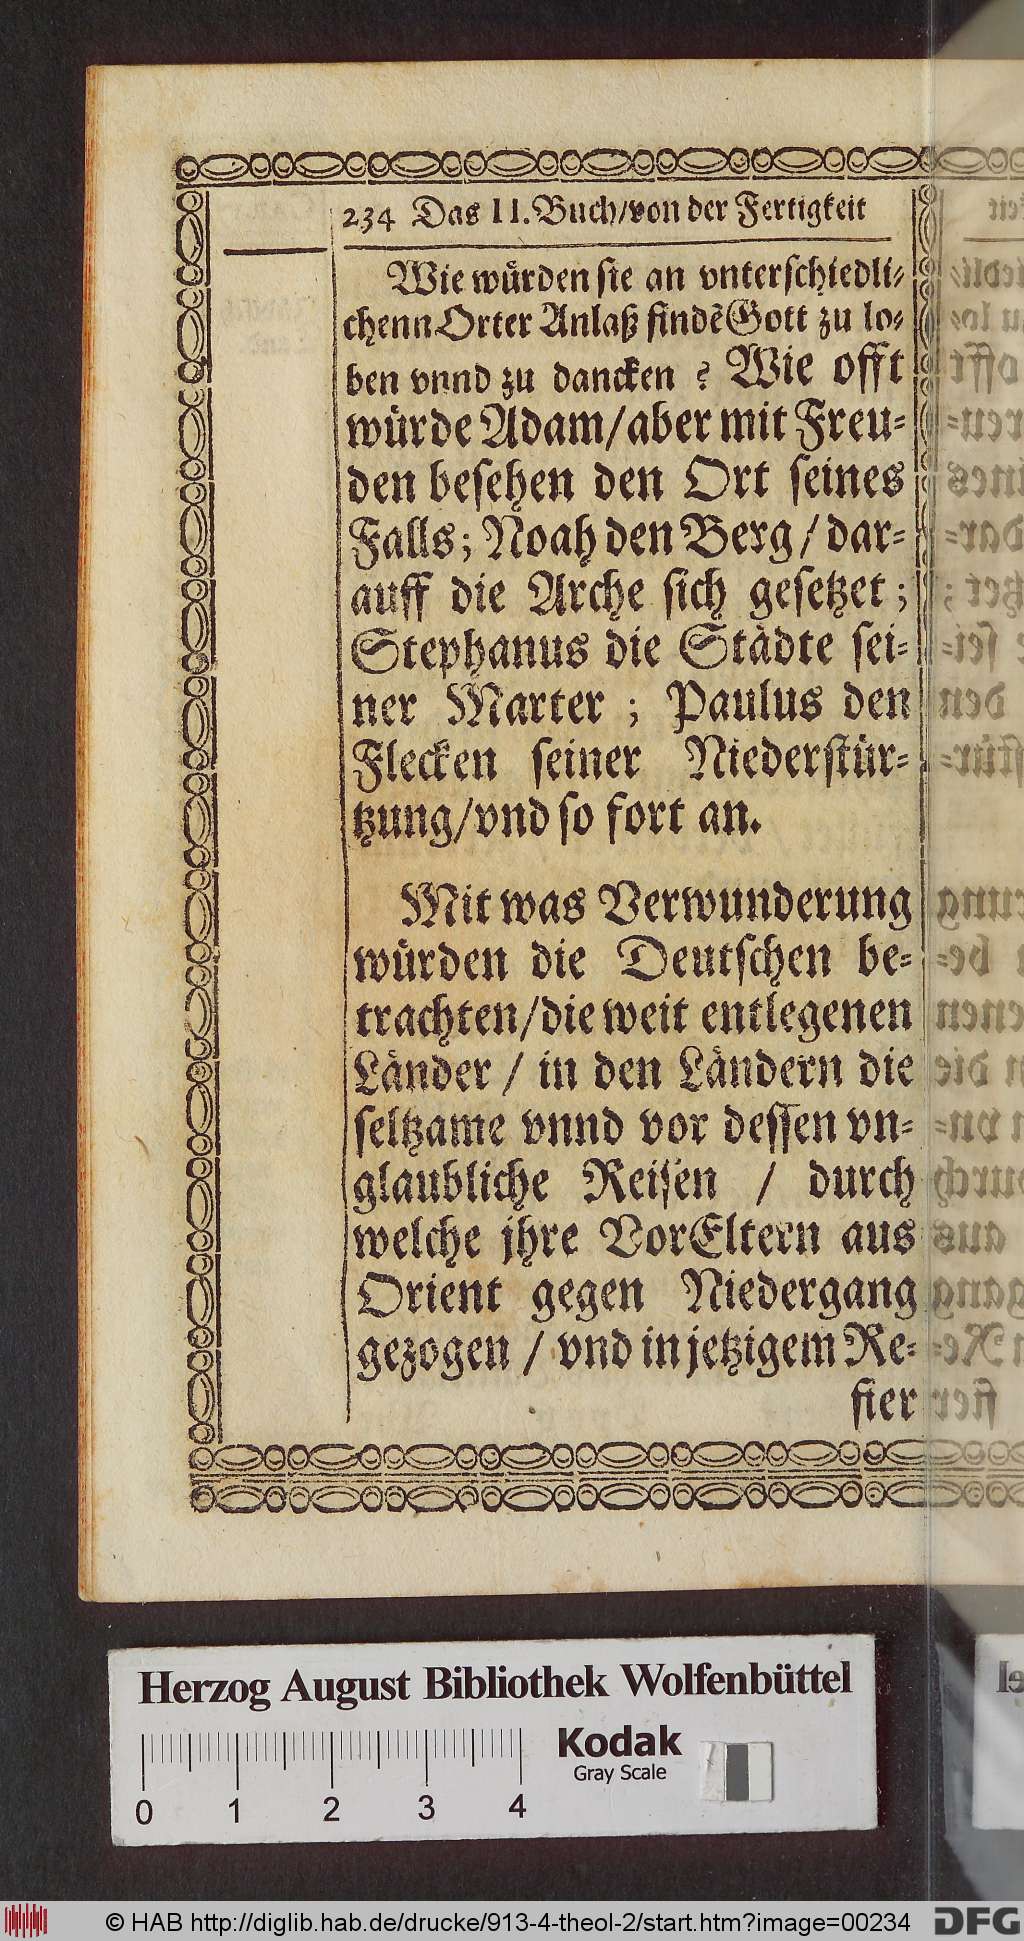 234 Das II. Buch/von der Fertigkeit
Wie wůrden sie an vnterschiedli-
chenn Orter Anlaß findẽ Gott zu lo-
ben vnnd zu dancken ? Wie offt
wůrde Adam/aber mit Freu-
den besehen den Ort seines
Falls; Noah den Berg / dar-
auff die Arche sich gesetzet ;
Stephanus die Städte sei-
ner Marter ; Paulus den
Flecken seiner Niederstür-
tzung/vnd so fort an.
Mit was Verwunderung
wůrden die Deutschen be-
trachten/die weit entlegenen
Länder / in den Ländern die
seltzame vnnd vor dessen vn-
glaubliche Reisen / durch
welche jhre VorEltern aus
Orient gegen Niedergang
gezogen / vnd in jetzigem Re-
sier
Herzog August Bibliothek Wolfenbüttel
Kodak
Gray Scale
0 1 2 3 4
© HAB http://diglib.hab.de/drucke/913-4-theol-2/start.htm?image=00234
DFG